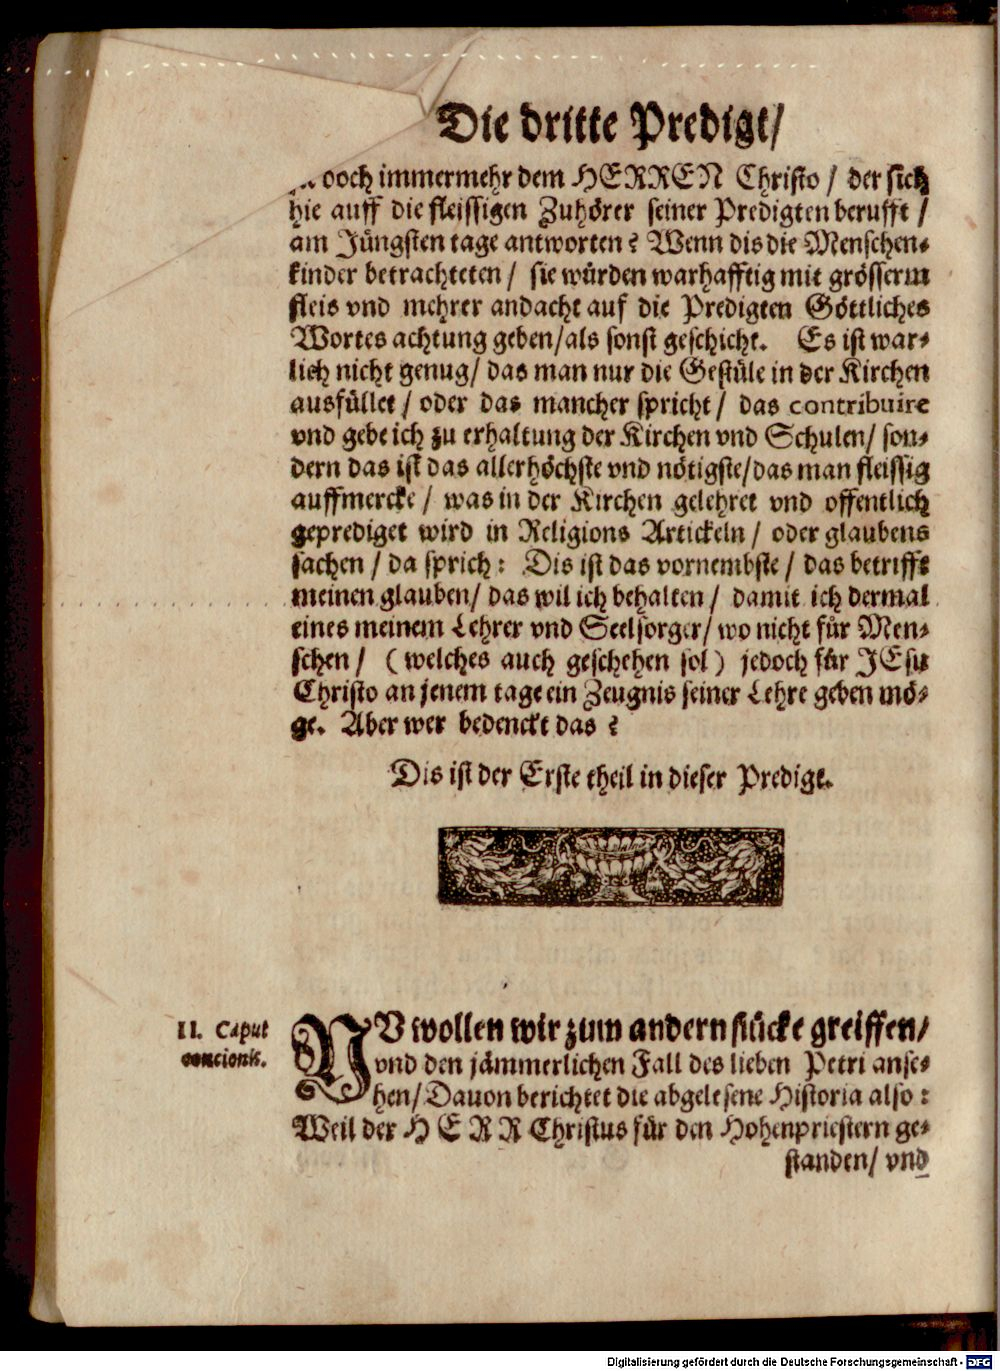 Die dritte Predigt/
doch immermehr dem HERREN Christo / der sich
hie auff die fleissigen Zuhörer seiner Predigten berufft /
am Jüngsten tage antworten? Wenn dis die Menschen-
kinder betrachteten / sie würden warhafftig mit grösserm
fleis vnd mehrer andacht auf die Predigten Göttliches
Wortes achtung geben/als sonst geschicht. Es ist war-
lich nicht genug/ das man nur die Gestüle in der Kirchen
ausfüllet / oder das mancher spricht / das contribuire
vnd gebe ich zu erhaltung der Kirchen vnd Schulen/ son-
dern das ist das allerhöchste vnd nötigste/das man fleissig
auffmercke / was in der Kirchen gelehret vnd offentlich
geprediget wird in Religions Artickeln / oder glaubens
sachen / da sprich: Dis ist das vornembste / das betrifft
meinen glauben/ das wil ich behalten / damit ich dermal
eines meinem Lehrer vnd Seelsorger/ wo nicht für Men-
schen / (welches auch geschehen sol) jedoch für JEsu
Christo an jenem tage ein Zeugnis seiner Lehre geben mö-
ge. Aber wer bedenckt das?
Dis ist der Erste theil in dieser Predigt.
II. Caput
concionis.
NV wollen wir zum andern stücke greiffen/
vnd den jämmerlichen Fall des lieben Petri anse-
hen/ Dauon berichtet die abgelesene Historia also:
Weil der HERR Christus für den Hohenpriestern ge-
standen/ vnd
Digitalisierung gefördert durch die Deutsche Forschungsgemeinschaft - DFG